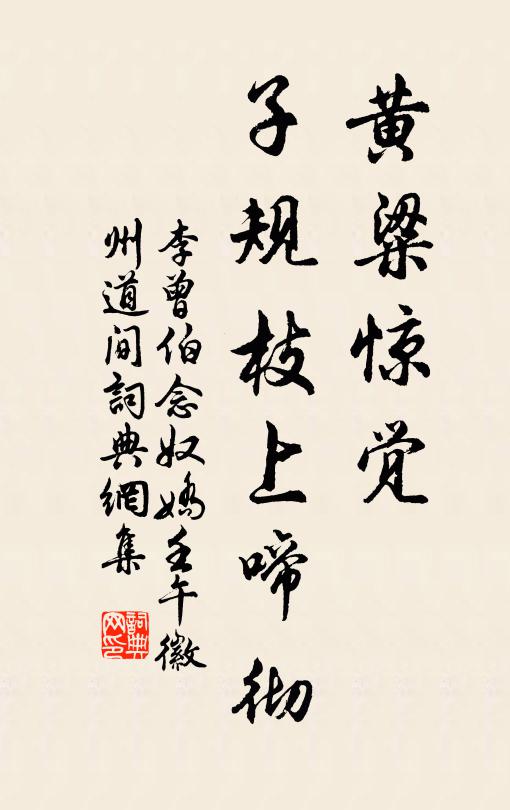 黄粱惊觉
子规枝上啼彻
李曾伯念奴嬌壬午徽
州道间詞典網集
詞典
网印